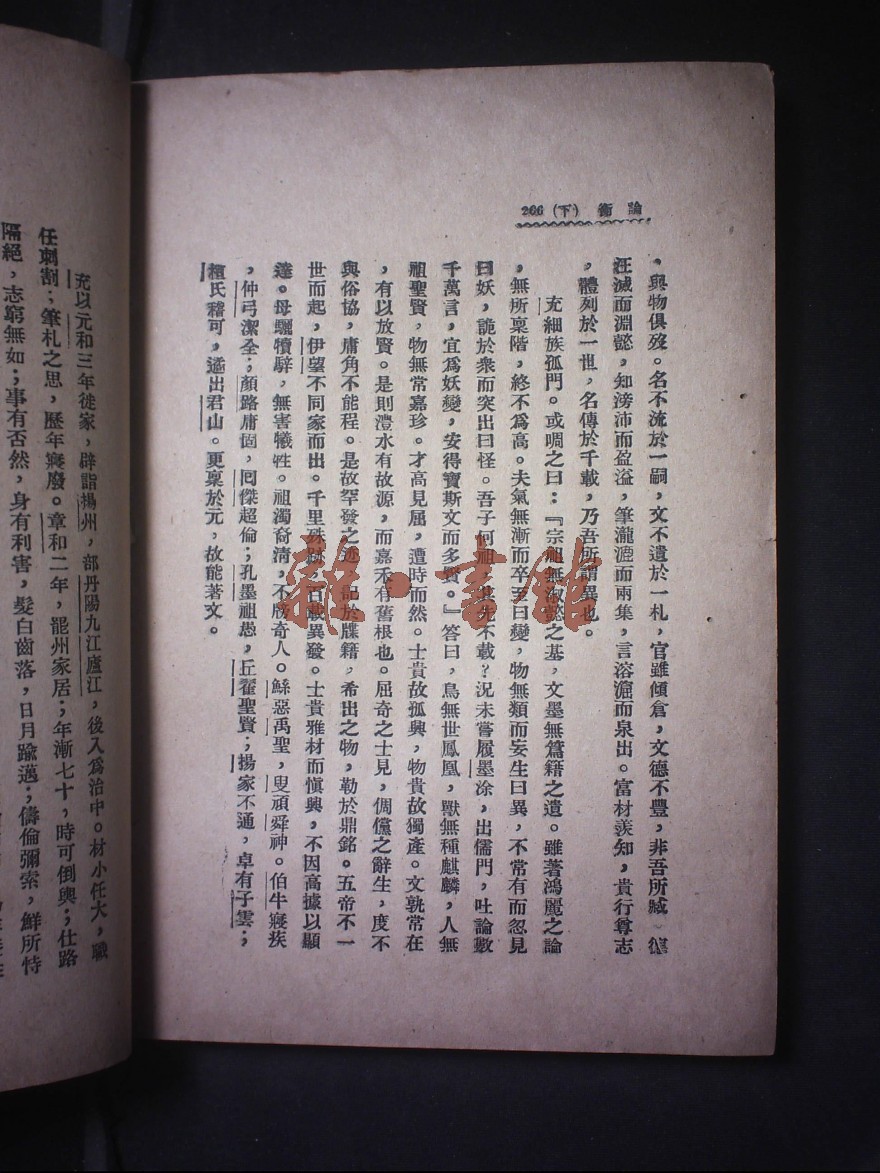 論衡（下）266
，與物俱歿。名不流於一嗣，文不遺於一札，官雖傾倉，文德不豐，非吾所臧。德
汪濊而淵懿，知滂沛而盈溢，筆瀧漉而雨集，言溶㵧而泉出。富材羨知，貴行尊志
，體列於一世，名傳於千載，乃吾所謂異也。
充細族孤門。或啁之曰：『宗祖無淑懿之基，文墨無篇籍之遺。雖著鴻麗之論
，無所稟階，終不爲高。夫氣無漸而卒至曰變，物無類而妄生曰異，不常有而忽見
曰妖，詭於衆而突出曰怪。吾子何祖，其先不載？況未嘗履墨涂，出儒門，吐論數
千萬言，宜爲妖變，安得寶斯文而多賢。』答曰，鳥無世鳳凰，獸無種麒麟，人無
祖聖賢，物無常嘉珍。才高見屈，遭時而然。士貴故孤興，物貴故獨產。文孰常在
，有以放賢。是則澧水有故源，而嘉禾有舊根也。屈奇之士見，倜儻之辭生，度不
與俗協，庸角不能程。是故罕發之迹，記於牒籍，希出之物，勒於鼎銘。五帝不一
世而起，伊望不同家而出。千里殊跡，百載異發。士貴雅材而愼興，不因高據以顯
達。母驪犢騂，無害犧牲。祖濁裔淸，不牓奇人。鯀惡禹聖，叟頑舜神。伯牛寢疾
，仲弓潔全；顏路庸固，囘傑超倫；孔墨祖愚，丘翟聖賢；揚家不通，卓有子雲；
桓氏稽可，遹出君山。更稟於元，故能著文。
充以元和三年徙家，辟詣揚州，部丹陽九江廬江，後入爲治中。材小任大，職
任刺割；筆札之思，歷年寢廢。章和二年，罷州家居；年漸七十，時可倒輿；仕路
隔絕，志窮無如；事有否然，身有利害，髮白齒落，日月踰邁；儔倫彌索，鮮所恃
雜·書館